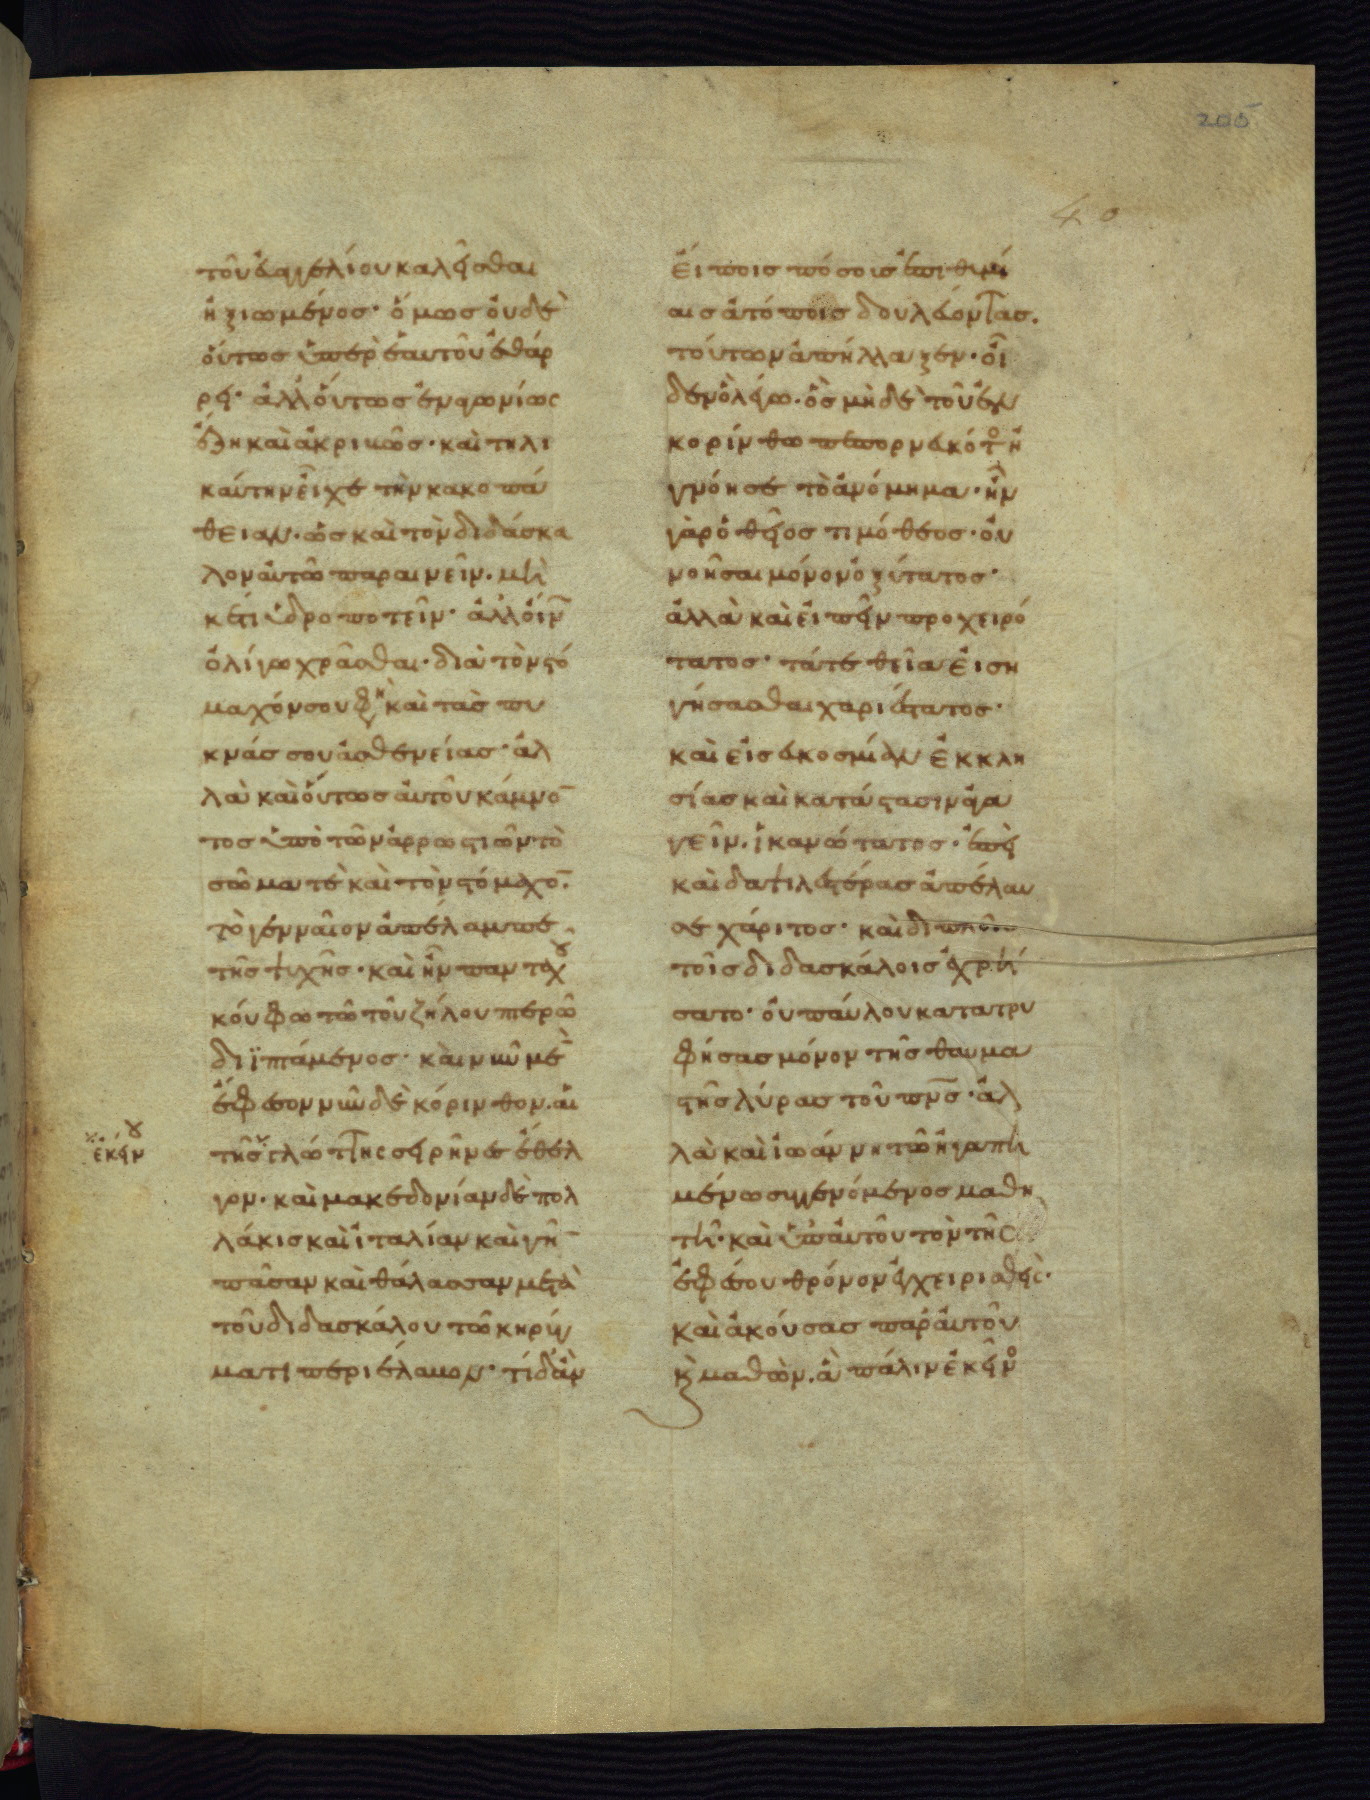 205
40
τοῦ ἐυαγγελίου καλεῖσθαι
ἠξιωμένος· ὅμως οὐδὲ
οὕτως ὑπὲρ ἑαυτοῦ ἐθάρ
ρει· ἀλλ οὕτως ἐναγωνίως
ἔζη καὶ ἀκριβῶς· καὶ τηλι
καύτην εἶχε τὴν κακοπά
θειαν· ὡς καὶ τὸν διδάσκα
λον αὐτῶ παραινεῖν. μη
κέτι ὑδροποτεῖν· ἀλλ οἴν
ὀλίγω χρᾶσθαι· διὰ τὸν στό
μαχόν σου φη καὶ τὰς πυ
κνάς σου ἀσθενείας· ἀλ
λὰ καὶ οὕτως αὐτοῦ κάμνο
τος ὑπὸ τῶν ἀρρωστιῶν τὸ
σῶμα τὲ καὶ τὸν στόμαχο.
τὸ γενναῖον ἀπέλαμπε
τῆς ψυχῆς· καὶ ἦν πανταχοῦ
κούφω τῶ τοῦ ζήλου πτερῶ
διϊπτάμενος· καὶ νῦν μὲ
ἔφεσον νῦν δὲ κόρινθον. αἱ
ἐκείνου
τῆς γλώττης σειρῆνες ἔθελ
γον· καὶ μακεδονίαν δὲ πολ
λάκις καὶ ἰταλίαν καὶ γῆ
πᾶσαν καὶ θάλασσαν μετὰ
τοῦ διδασκάλου τῶ κηρύγ
ματι περιέλαμπεν· τί δ ἂν
εἴποις πόσοις ἐπιθυμί
αις ἀτόποις δουλεύοντας.
τούτων ἀπήλλαξεν· οἶ
δεν ὀλίγω. ὃς μὴ δὲ τοῦ ἐν
κορίνθω πεπορνευκότος ἠ
γνόησε τὸ ἀνόμημα· ἦν
γὰρ ὁ θεῖος τιμόθεος· οὐ
νοῆσαι μόνον ὀξύτατος·
ἀλλὰ καὶ εἰπεῖν προχειρό
τατος· τά τε θεῖα εἰση
γήσασθαι χαριέστατος·
καὶ εἰς εὐκοσμίαν ἐκκλη
σίας καὶ κατάστασιν ἀγα
γεῖν. ἱκανώτατος· ἐπεὶ
καὶ δαψιλεστέρας ἀπέλαυ
σε χάριτος· καὶ διττοῖς
τοῖς διδασκάλοις ἐχρή
σατο· οὐ παύλου κατατρυ
φήσας μόνον τῆς θαυμα
στῆς λύρας τοῦ πνς· ἀλ
λὰ καὶ ἰωάννη τῶ ἠγαπη
μένω συγγενόμενος μαθη
τῆ· καὶ ὑπ αὐτοῦ τὸν τῆς
ἐφέσου θρόνον ἐγχειρισθείς·
καὶ ἀκούσας παρ αὐτοῦ
κ μαθὼν. ἃ πάλιν ἐκεῖνος